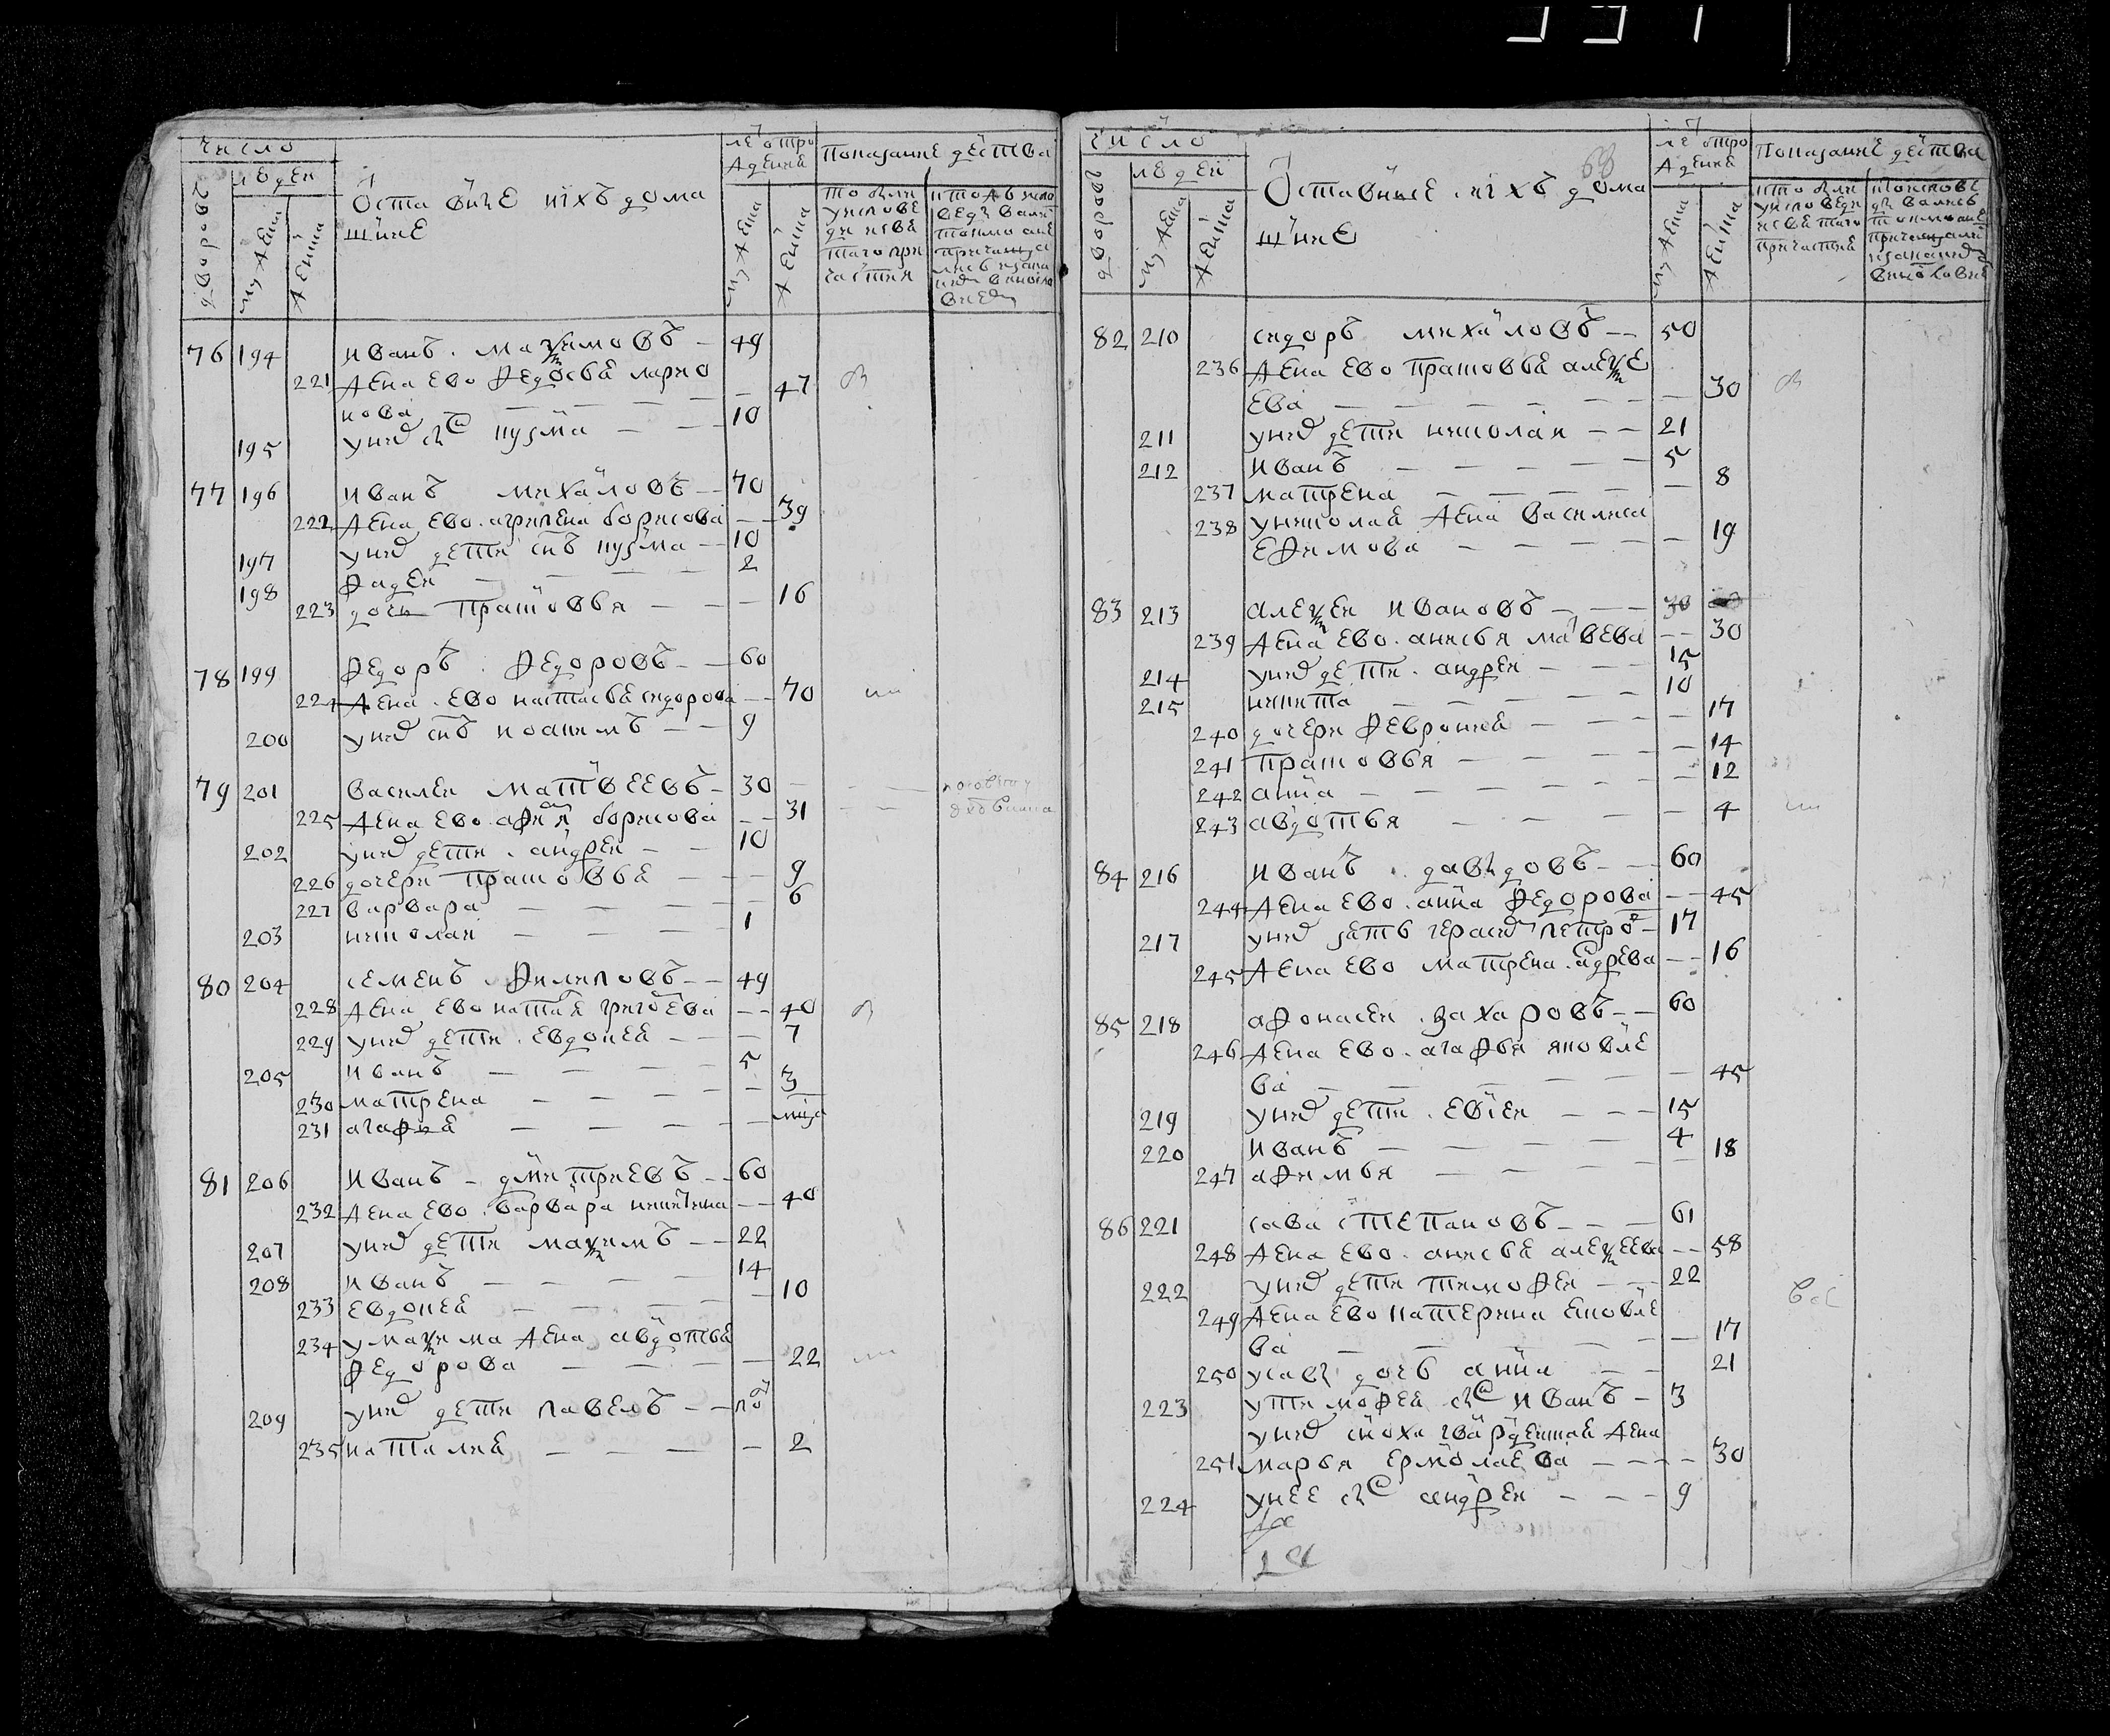 число
людеи
дворовъ
мужеска
женска
Оставшие ихъ дома
шние
лѣ отро
ждение
мужеска
женска
Показание действа
76 194 иванъ максимовъ 49
221 жена ево федосья ларио
нова 47
195 у них снъ кузма 10
77 196 иванъ михаиловъ 70
222 жена ево агрипена борисова 39
197 у них дети снъ кузма 10
198 фадеи 2
223 дочь прасковья 16
78 199 федоръ федоровъ 60
224 жена ево настасья сидорова 70
200 у них снъ иоакимъ 9
79 201 василеи матвеевъ 30
225 жена ево афимя борисова 31
202 у них дети андреи 10
226 дочери прасковья 9
227 варвара 6
203 николаи 1
80 204 семенъ филиповъ 49
228 жена ево наталя григорева 40
229 у них дети евдокея 7
205 иванъ 5
230 матрена 3
231 агафия
81 206 иванъ дмитриевъ 60
232 жена ево варвара никитина 40
207 у них дети максимъ 22
208 иванъ 14
233 евдокея 10
234 у максима жена авдотья
федорова 22
209 у них дети павелъ
235 наталия 2
68
число
людеи
дворовъ
мужеска
женска
Оставшие ихъ дома
шние
лѣ отро
ждение
мужеска
женска
Показание действа
82 210 сидоръ михаиловъ 50
236 жена ево прасковья алексе
ева 30
211 у них дети николаи 21
212 иванъ 5
237 матрена 8
238 у николая жена василиса
ефимова 19
83 213 алексеи ивановъ 30
239 жена ево анисья матвева 30
214 у них дети андреи 15
215 никита 10
240 дочери феврония 17
241 прасковья 14
242 анна 12
243 авдотья 4
84 216 иванъ давыдовъ 60
244 жена ево анна федорова 45
217 у них зять герасим петров 17
245 жена ево матрена андрева 16
85 218 афонасеи захаровъ 60
246 жена ево агафья яковле
ва 45
219 у них дети евсеи 15
220 иванъ 4
247 афимья 18
86 221 сава степановъ 61
248 жена ево анисья алексеева 58
222 у них дети тимофеи 22
249 жена ево катерина яковле
ва 17
250 у савы дочь анна 21
223 у тимофея снъ иванъ 3
у них сноха гвардеиская жена
251 марья ермолаева 30
224 у нее снъ андреи 9